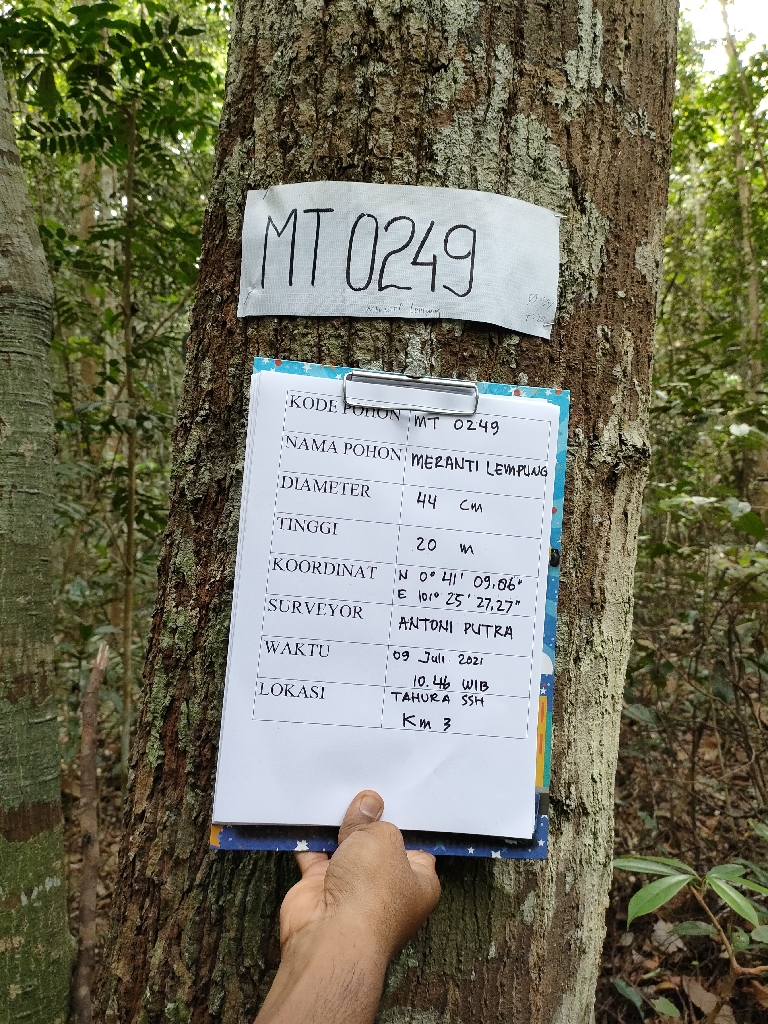 MT 0249
KODE POHON MT 0249
NAMA POHON MERANTI LEMPUNG
DIAMETER 44 cm
TINGGI 20 m
KOORDINAT N 0° 41' 09,06"
E 101° 25' 27,27"
SURVEYOR ANTONI PUTRA
WAKTU 09 Juli 2021
10.46 WIB
LOKASI TAHURA SSH
Km 3